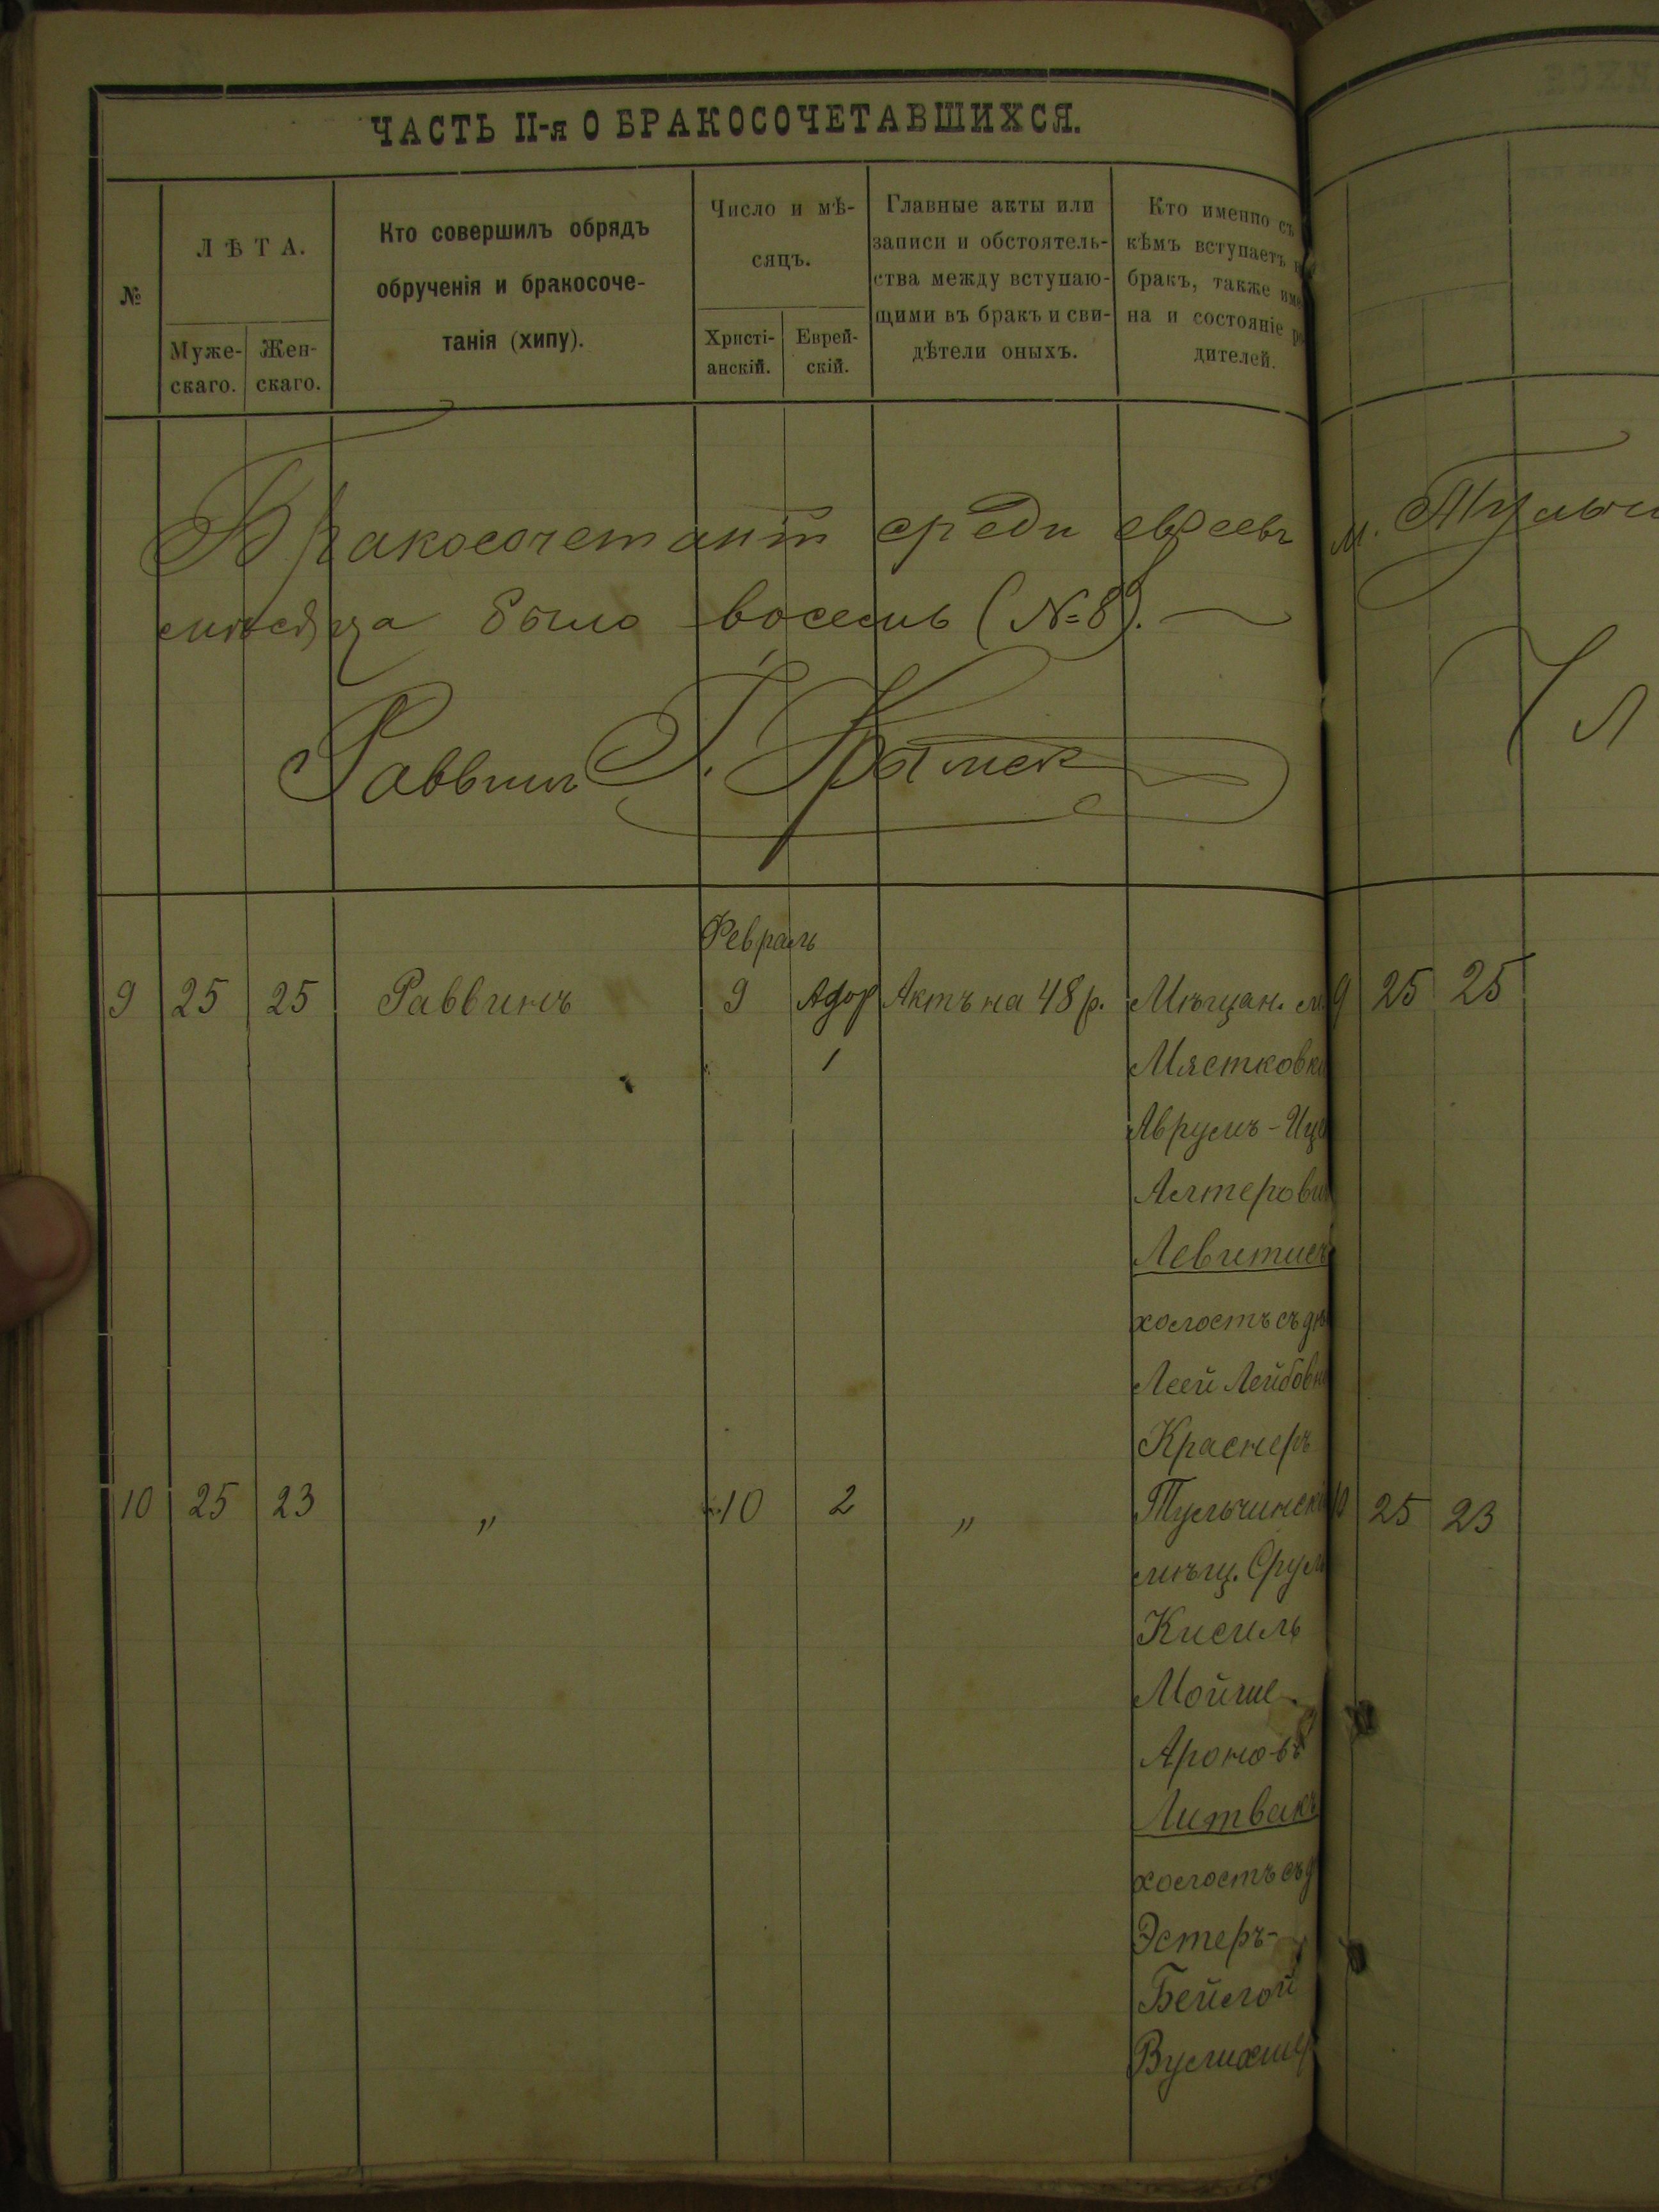 ЧАСТЬ II-я О БРАКОСОЧЕТАВШИХСЯ.
№
ЛѢТА.
Муже-
скаго.
Жен-
скаго.
Кто совершилъ обрядъ
обрученія и бракосоче-
танія (хипу).
Число и мѣ-
сяцъ.
Христі-
анскій.
Еврей-
скій.
Главные акты или
записи и обстоятель-
ства между вступаю-
щими въ бракъ и сви-
дѣтели оныхъ.
Кто именно съ
кѣмъ вступаетъ
бракъ, также
на и состояніе
дителей.
Бракосочетаній среди евреевъ м.
было восемь (№ 8).
Раввинъ
Февраль
9 25 25 Раввинъ 9 Адор Актъ на 48 р. Мѣщан.
1 Мястковк
Аврумъ-Иц
Алтерови
Левитис
холостъ съ дѣ
Леей Лейбовн
Краснеръ
10 25 23 „ 10 2 „ Тульчинскі
мѣщ. Срул
Кисиль
Мойше
Ароновъ
Литвакъ
холостъ съ д
Эстеръ-
Бейлой
9 25 25
10 25 23